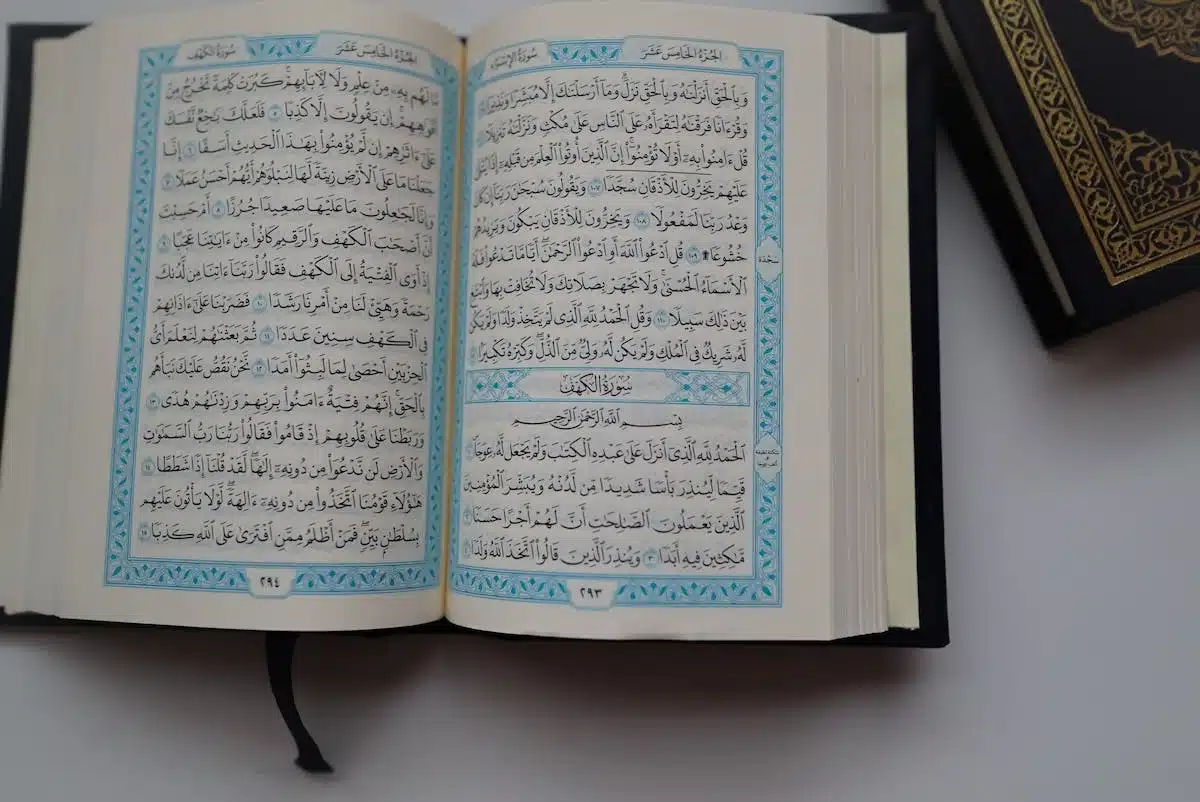 الجزء الخامس عشر
سورة الإسراء
وَبِالْحَقِّ أَنزَلْنَاهُ وَبِالْحَقِّ نَزَلَ ۗ وَمَا أَرْسَلْنَاكَ إِلَّا مُبَشِّرًا وَنَذِيرًا ١٠٥
وَقُرْءَانًا فَرَقْنَاهُ لِتَقْرَأَهُ عَلَى النَّاسِ عَلَىٰ مُكْثٍ وَنَزَّلْنَاهُ تَنزِيلًا ١٠٦
قُلْ ءَامِنُوا بِهِ أَوْ لَا تُؤْمِنُوا ۚ إِنَّ الَّذِينَ أُوتُوا الْعِلْمَ مِن قَبْلِهِ إِذَا يُتْلَىٰ
عَلَيْهِمْ يَخِرُّونَ لِلْأَذْقَانِ سُجَّدًا ١٠٧ وَيَقُولُونَ سُبْحَانَ رَبِّنَا إِن كَانَ
وَعْدُ رَبِّنَا لَمَفْعُولًا ١٠٨ وَيَخِرُّونَ لِلْأَذْقَانِ يَبْكُونَ وَيَزِيدُهُمْ
خُشُوعًا ۩ ١٠٩ قُلِ ادْعُوا اللَّهَ أَوِ ادْعُوا الرَّحْمَٰنَ ۖ أَيًّا مَّا تَدْعُوا فَلَهُ
الْأَسْمَاءُ الْحُسْنَىٰ ۚ وَلَا تَجْهَرْ بِصَلَاتِكَ وَلَا تُخَافِتْ بِهَا وَابْتَغِ
بَيْنَ ذَٰلِكَ سَبِيلًا ١١٠ وَقُلِ الْحَمْدُ لِلَّهِ الَّذِي لَمْ يَتَّخِذْ وَلَدًا وَلَمْ يَكُن
لَّهُ شَرِيكٌ فِي الْمُلْكِ وَلَمْ يَكُن لَّهُ وَلِيٌّ مِّنَ الذُّلِّ ۖ وَكَبِّرْهُ تَكْبِيرًا ١١١
سُورَةُ الْكَهْفِ
بِسْمِ اللَّهِ الرَّحْمَٰنِ الرَّحِيمِ
الْحَمْدُ لِلَّهِ الَّذِي أَنزَلَ عَلَىٰ عَبْدِهِ الْكِتَابَ وَلَمْ يَجْعَل لَّهُ عِوَجًا ١
قَيِّمًا لِّيُنذِرَ بَأْسًا شَدِيدًا مِّن لَّدُنْهُ وَيُبَشِّرَ الْمُؤْمِنِينَ
الَّذِينَ يَعْمَلُونَ الصَّالِحَاتِ أَنَّ لَهُمْ أَجْرًا حَسَنًا ٢
مَّاكِثِينَ فِيهِ أَبَدًا ٣ وَيُنذِرَ الَّذِينَ قَالُوا اتَّخَذَ اللَّهُ وَلَدًا ٤
سجدة
٢٩٣
الجزء الخامس عشر
سورة الكهف
مَّا لَهُم بِهِ مِنْ عِلْمٍ وَلَا لِآبَائِهِمْ ۚ كَبُرَتْ كَلِمَةً تَخْرُجُ مِنْ
أَفْوَاهِهِمْ ۚ إِن يَقُولُونَ إِلَّا كَذِبًا ٥ فَلَعَلَّكَ بَاخِعٌ نَّفْسَكَ
عَلَىٰ ءَاثَارِهِمْ إِن لَّمْ يُؤْمِنُوا بِهَٰذَا الْحَدِيثِ أَسَفًا ٦ إِنَّا
جَعَلْنَا مَا عَلَى الْأَرْضِ زِينَةً لَّهَا لِنَبْلُوَهُمْ أَيُّهُمْ أَحْسَنُ عَمَلًا ٧
وَإِنَّا لَجَاعِلُونَ مَا عَلَيْهَا صَعِيدًا جُرُزًا ٨ أَمْ حَسِبْتَ
أَنَّ أَصْحَابَ الْكَهْفِ وَالرَّقِيمِ كَانُوا مِنْ ءَايَاتِنَا عَجَبًا ٩
إِذْ أَوَى الْفِتْيَةُ إِلَى الْكَهْفِ فَقَالُوا رَبَّنَا ءَاتِنَا مِن لَّدُنكَ
رَحْمَةً وَهَيِّئْ لَنَا مِنْ أَمْرِنَا رَشَدًا ١٠ فَضَرَبْنَا عَلَىٰ ءَاذَانِهِمْ
فِي الْكَهْفِ سِنِينَ عَدَدًا ١١ ثُمَّ بَعَثْنَاهُمْ لِنَعْلَمَ أَيُّ
الْحِزْبَيْنِ أَحْصَىٰ لِمَا لَبِثُوا أَمَدًا ١٢ نَّحْنُ نَقُصُّ عَلَيْكَ نَبَأَهُم
بِالْحَقِّ ۚ إِنَّهُمْ فِتْيَةٌ ءَامَنُوا بِرَبِّهِمْ وَزِدْنَاهُمْ هُدًى ١٣
وَرَبَطْنَا عَلَىٰ قُلُوبِهِمْ إِذْ قَامُوا فَقَالُوا رَبُّنَا رَبُّ السَّمَاوَاتِ
وَالْأَرْضِ لَن نَّدْعُوَا مِن دُونِهِ إِلَٰهًا ۖ لَّقَدْ قُلْنَا إِذًا شَطَطًا ١٤
هَٰؤُلَاءِ قَوْمُنَا اتَّخَذُوا مِن دُونِهِ ءَالِهَةً ۖ لَّوْلَا يَأْتُونَ عَلَيْهِم
بِسُلْطَانٍ بَيِّنٍ ۖ فَمَنْ أَظْلَمُ مِمَّنِ افْتَرَىٰ عَلَى اللَّهِ كَذِبًا ١٥
٢٩٤